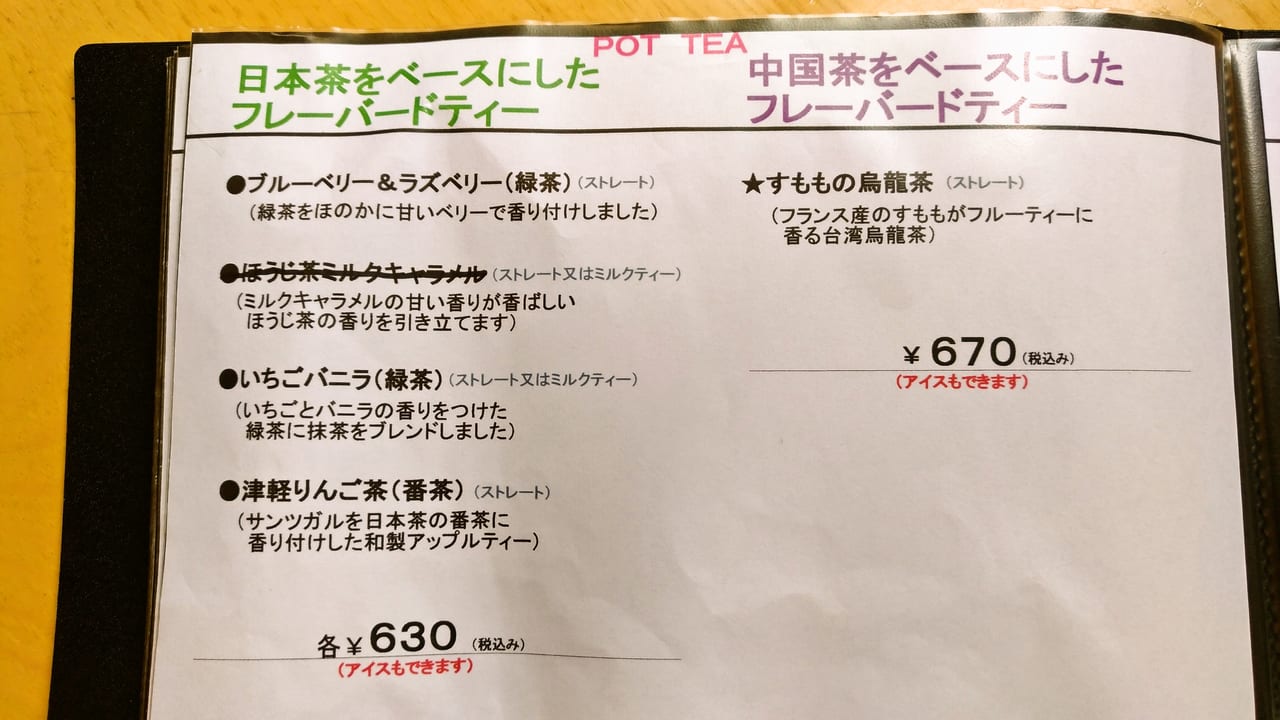 POT TEA
日本茶をベースにした
フレーバードティー
●ブルーベリー＆ラズベリー（緑茶）（ストレート）
（緑茶をほのかに甘いベリーで香り付けしました）
●ほうじ茶ミルクキャラメル（ストレート又はミルクティー）
（ミルクキャラメルの甘い香りが香ばしい
ほうじ茶の香りを引き立てます）
●いちごバニラ（緑茶）（ストレート又はミルクティー）
（いちごとバニラの香りをつけた
緑茶に抹茶をブレンドしました）
●津軽りんご茶（番茶）（ストレート）
（サンツガルを日本茶の番茶に
香り付けした和製アップルティー）
各￥630（税込み）
（アイスもできます）
中国茶をベースにした
フレーバードティー
★すももの烏龍茶（ストレート）
（フランス産のすももがフルーティーに
香る台湾烏龍茶）
￥670（税込み）
（アイスもできます）